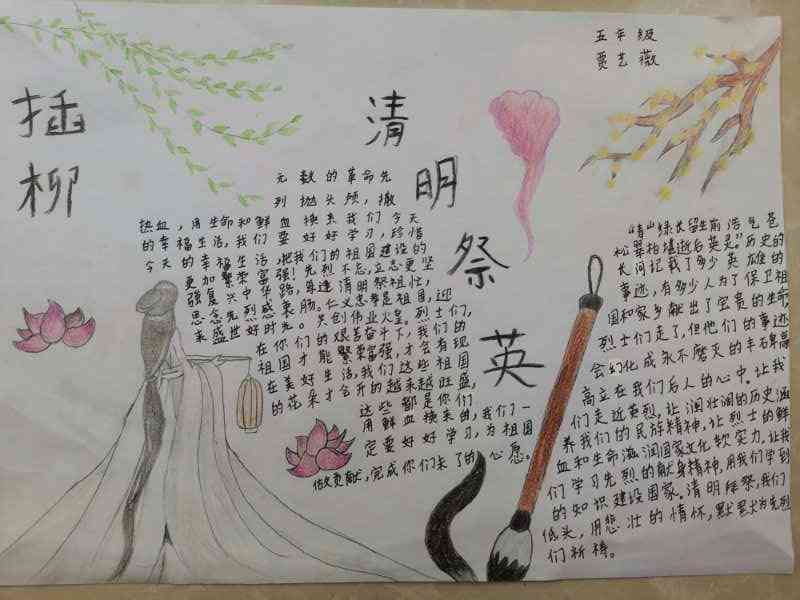 插柳
清明祭英
五年级
贾艺薇
无数的革命先
列抛头颅，撒
热血，用生命和鲜血换来我们今天
的幸福生活，我们要好好学习，珍惜
今天的幸福生活，把我们的祖国建设的
更加繁荣富强！先烈不忘，立志更坚
强复兴中华路，每逢清明祭祖壮，
思念先烈感衷肠。仁义忠孝是祖国，迎
来盛世好时光。共创伟业火皇。烈士们，
在你们的艰苦奋斗下，我们的
祖国才能繁荣富强，才会有现
在美好生活，我们这些祖国
的花朵才会开的越来越旺盛，
这些都是你们
用鲜血换来的，我们一
定要好好学习，为祖国
做贡献，完成你们未了的心愿。
“青山绿长留生前浩气苍
松翠柏堪逝后英灵。”历史的
长河记载了多少英雄的
事迹，有多少人为了保卫祖
国和家乡献出了宝贵的生命
烈士们走了，但他们的事迹
会幻化成永不磨灭的丰石
高立在我们后人的心中。让我
们走近英烈，让润壮润的历史涵
养我们的民族精神，让烈士的鲜
血和生命滋润国家文化软实力，让我
们学习先烈的献身精神，用我们学到
的知识建设国家。清明拜祭，我们
低头，用悲壮的情怀，默默为先烈
们祈祷。